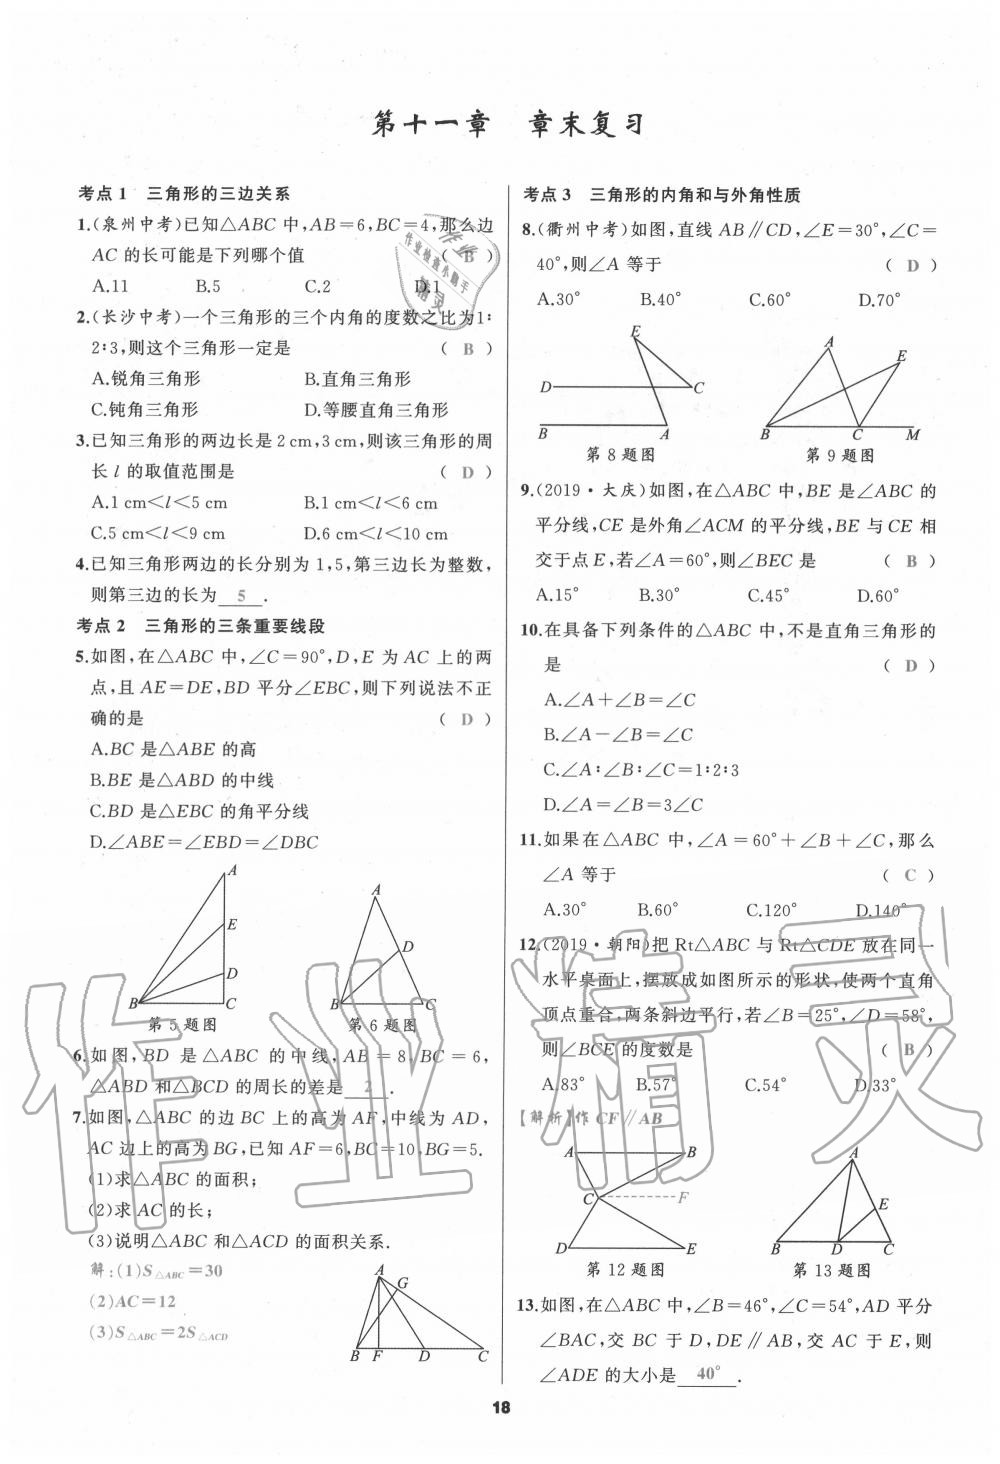 第十一章 章末复习
考点1 三角形的三边关系
1.(泉州中考)已知△ABC中,AB=6,BC=4,那么边
AC的长可能是下列哪个值 ( B )
A.11 B.5 C.2 D.1
2.(长沙中考)一个三角形的三个内角的度数之比为1∶
2∶3,则这个三角形一定是 ( B )
A.锐角三角形 B.直角三角形
C.钝角三角形 D.等腰直角三角形
3.已知三角形的两边长是2 cm,3 cm,则该三角形的周
长l的取值范围是 ( D )
A.1 cm<l<5 cm B.1 cm<l<6 cm
C.5 cm<l<9 cm D.6 cm<l<10 cm
4.已知三角形两边的长分别为1,5,第三边长为整数,
则第三边的长为 5 .
考点2 三角形的三条重要线段
5.如图,在△ABC中,∠C=90°,D,E为AC上的两
点,且AE=DE,BD平分∠EBC,则下列说法不正
确的是 ( D )
A.BC是△ABE的高
B.BE是△ABD的中线
C.BD是△EBC的角平分线
D.∠ABE=∠EBD=∠DBC
A
E
D
B C
第5题图
A
D
B C
第6题图
6.如图,BD是△ABC的中线,AB=8,BC=6,
△ABD和△BCD的周长的差是 2 .
7.如图,△ABC的边BC上的高为AF,中线为AD,
AC边上的高为BG,已知AF=6,BC=10,BG=5.
(1)求△ABC的面积;
(2)求AC的长;
(3)说明△ABC和△ACD的面积关系.
解:(1)S△ABC=30
(2)AC=12
(3)S△ABC=2S△ACD
A
G
B F D C
考点3 三角形的内角和与外角性质
8.(衢州中考)如图,直线AB∥CD,∠E=30°,∠C=
40°,则∠A等于 ( D )
A.30° B.40° C.60° D.70°
E
D C
B A
第8题图
A
E
B C M
第9题图
9.(2019·大庆)如图,在△ABC中,BE是∠ABC的
平分线,CE是外角∠ACM的平分线,BE与CE相
交于点E,若∠A=60°,则∠BEC是 ( B )
A.15° B.30° C.45° D.60°
10.在具备下列条件的△ABC中,不是直角三角形的
是 ( D )
A.∠A+∠B=∠C
B.∠A-∠B=∠C
C.∠A∶∠B∶∠C=1∶2∶3
D.∠A=∠B=3∠C
11.如果在△ABC中,∠A=60°+∠B+∠C,那么
∠A等于 ( C )
A.30° B.60° C.120° D.140°
12.(2019·朝阳)把Rt△ABC与Rt△CDE放在同一
水平桌面上,摆放成如图所示的形状,使两个直角
顶点重合,两条斜边平行,若∠B=25°,∠D=58°,
则∠BCE的度数是 ( B )
A.83° B.57° C.54° D.33°
【解析】作CF∥AB
A B
C F
D E
第12题图
A
E
B D C
第13题图
13.如图,在△ABC中,∠B=46°,∠C=54°,AD平分
∠BAC,交BC于D,DE∥AB,交AC于E,则
∠ADE的大小是 40° .
18
作业精灵
作业
作业检查小助手
精灵